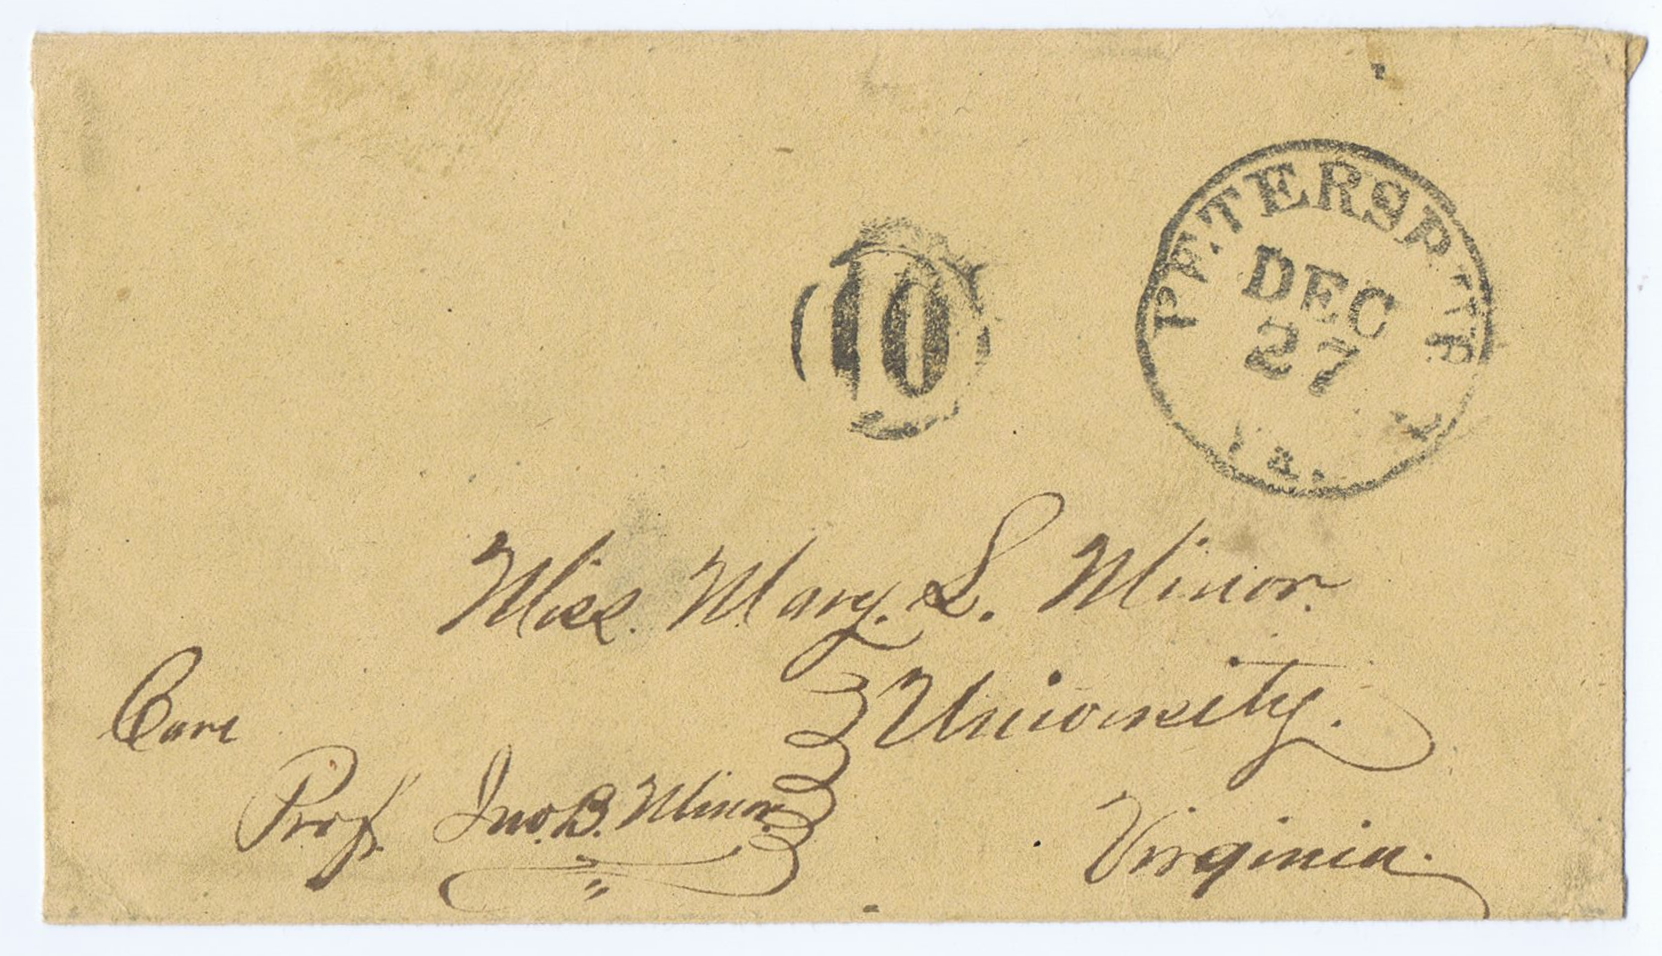 10
PETERSBURG
DEC
27
Va.
Miss. Mary. L. Minor.
University.
Virginia.
Care
Prof. Jno. B. Minor.